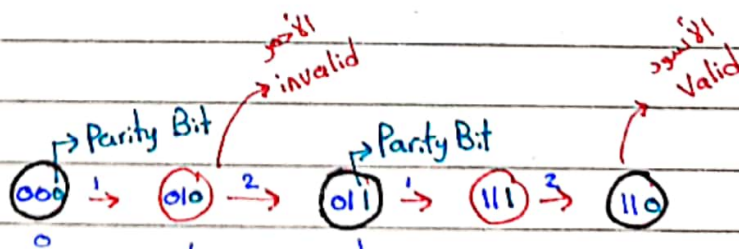 الأحمر
invalid
الأسود
Valid
Parity Bit
Parity Bit
000 1 → 010 2 → 011 1 → 111 2 → 110
0 1 1